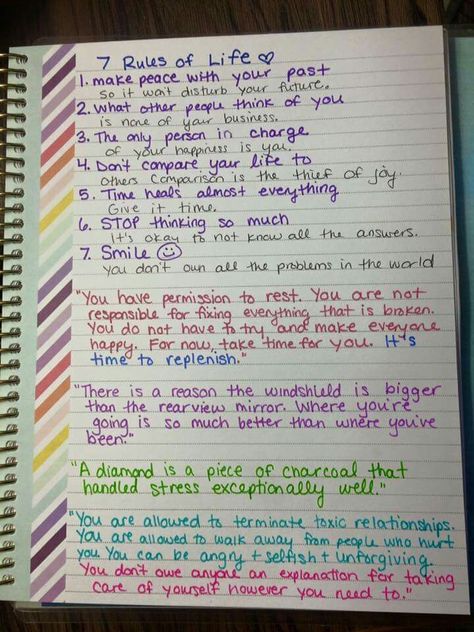 7 Rules of Life ♡
1. make peace with your past
so it won't disturb your future.
2. What other people think of you
is none of your business.
3. The only person in charge
of your happiness is you.
4. Don't compare your life to
others. Comparison is the thief of joy.
5. Time heals almost everything
Give it time.
6. STOP thinking so much
It's okay to not know all the answers.
7. Smile ☺
You don't own all the problems in the world
"You have permission to rest. You are not
responsible for fixing everything that is broken.
You do not have to try and make everyone
happy. For now, take time for you. It's
time to replenish."
"There is a reason the windshield is bigger
than the rearview mirror. Where you're
going is so much better than where you've
been."
"A diamond is a piece of charcoal that
handled stress exceptionally well."
"You are allowed to terminate toxic relationships.
You are allowed to walk away from people who hurt
you. You can be angry + selfish + unforgiving.
You don't owe anyone an explanation for taking
care of yourself however you need to."